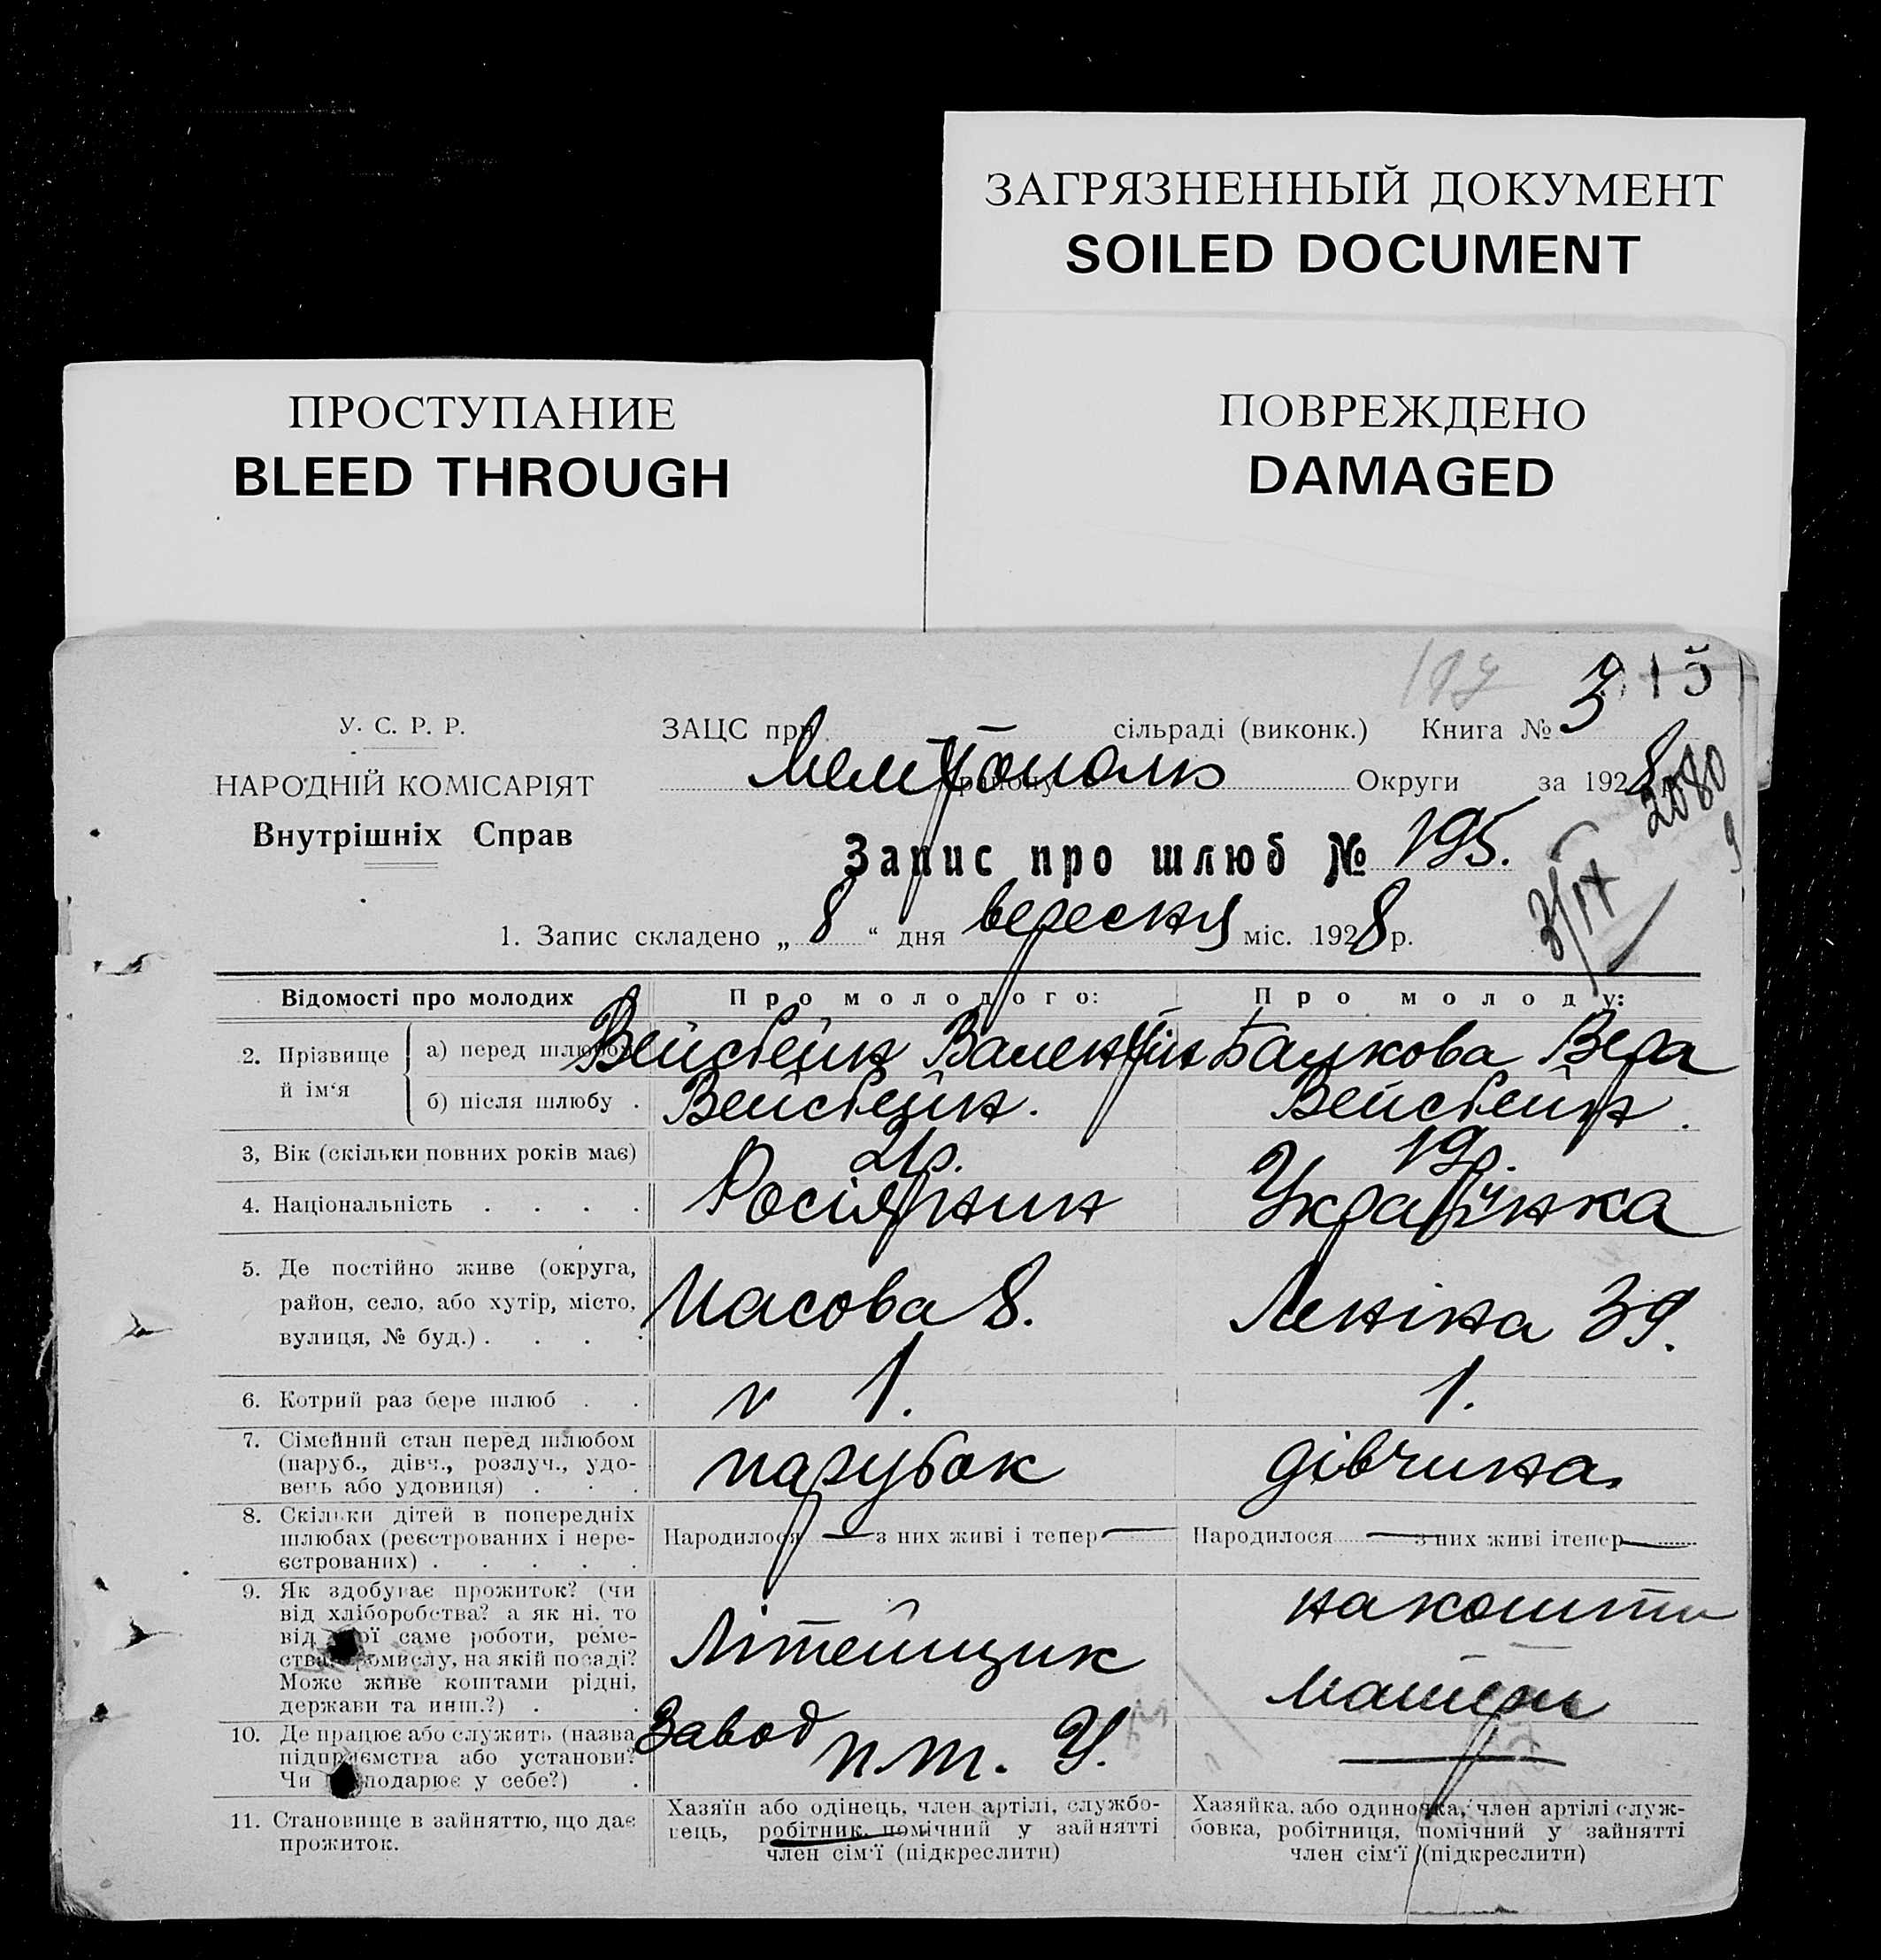 ЗАГРЯЗНЕННЫЙ ДОКУМЕНТ
SOILED DOCUMENT
ПРОСТУПАНИЕ
BLEED THROUGH
ПОВРЕЖДЕНО
DAMAGED
315
У. С. Р. Р.
НАРОДНІЙ КОМІСАРІЯТ
Внутрішніх Справ
ЗАЦС при сільраді (виконк.) Книга № 3
Мелітополь району Округи за 1928
2080
Запис про шлюб № 195.
3/IX
1. Запис складено „ 8 “ дня вересня міс. 1928 р.
Відомості про молодих
Про молодого:
Про молоду:
2. Прізвище й ім‘я
а) перед шлюбом
Вейсбейн Валентін
Балкова Вера
б) після шлюбу .
Вейсбейн.
Вейсбейн.
3, Вік (скільки повних років має)
21р.
19р.
4. Національність . . . .
Росіянин
Українка
5. Де постійно живе (округа,
район, село, або хутір, місто,
вулиця, № буд.) . . . .
Масова 8.
Леніна 39.
6. Котрий раз бере шлюб . .
1.
1.
7. Сімейний стан перед шлюбом
(паруб., дівч., розлуч., удо-
вець або удовиця) . . .
парубок
дівчина
8. Скільки дітей в попередніх
шлюбах (реєстрованих і нере-
єстрованих) . . . . .
Народилося — з них живі і тепер —
Народилося — з них живі ітепер —
9. Як здобуває прожиток? (чи
від хліборобства? а як ні. то
від ої саме роботи, реме-
ства ромислу, на якій посаді?
Може живе коштами рідні,
держави та инш.?) . .
Літейщик
на кошти
матери
10. Де працює або служить (назва
підприємства або установи?
Чи подарює у себе?) .
Завод п.т. У.
—
11. Становище в зайняттю, що дає
прожиток.
Хазяїн або одінець, член артілі, службо-
вець, робітник, помічний у зайнятті
член сім‘ї (підкреслити)
Хазяйка, або одиночка, член артілі служ-
бовка, робітниця, помічний у зайнятті
член сім‘ї (підкреслити)